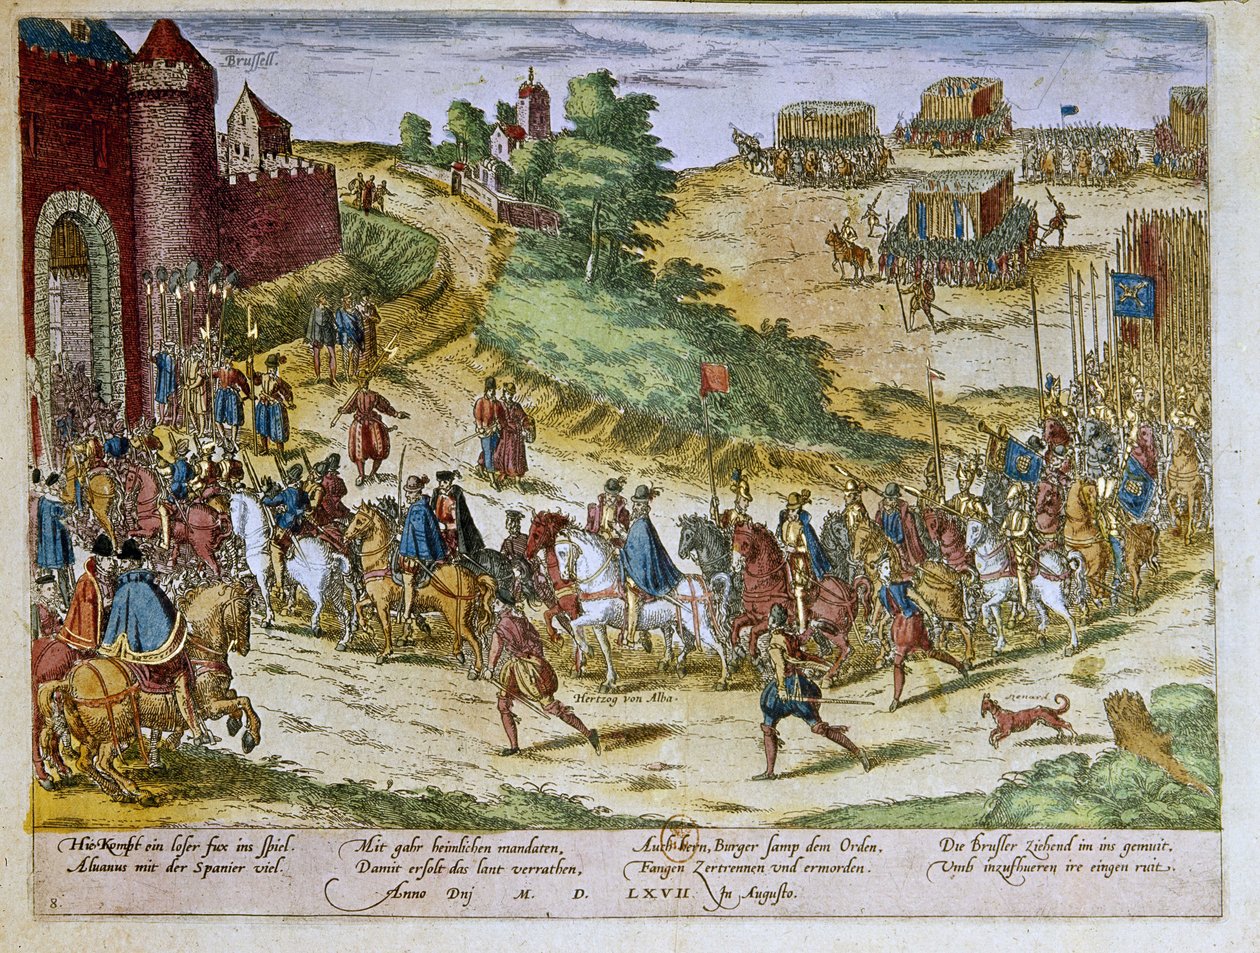 Brussell.
Hertzog von Alba.
Renard
Hie Kompt ein loser fux ins spiel.
Aluanus mit der Spanier viel.
Mit gahr heimlichen mandaten,
Damit er solt das lant verrathen,
Auch hern, Burger samp dem Orden,
Fangen Zertrennen vnd ermorden.
Die Brusler Ziehend im ins gemuit,
Vmb inzufhueren ire eingen ruit.
Anno Dnj M. D. LXVII In Augusto.
8.